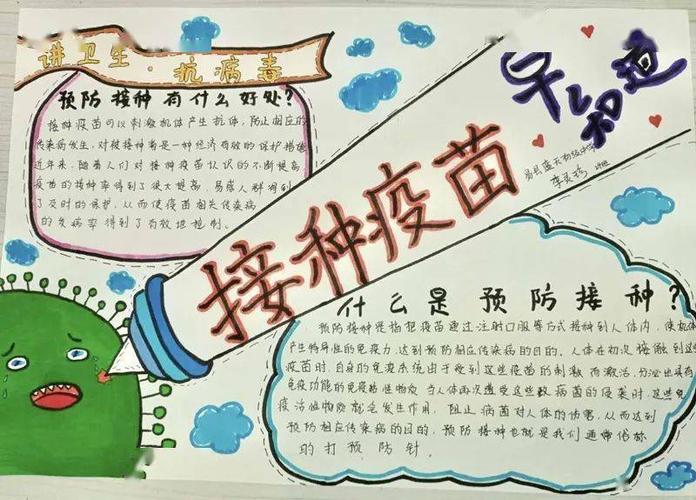 讲卫生·抗病毒
预防接种有什么好处?
接种疫苗可以刺激机体产生抗体,防止相应的
传染病发生,对被接种者是一种经济有效的保护措施
近年来,随着人们对接种疫苗认识的不断提高
疫苗的接种率得到了很大提高,易感人群得到
了及时的保护,从而使疫苗相关传染病
的发病率得到了有效地控制。
早知道
易县蓝天初级中学
接种疫苗
什么是预防接种?
预防接种是指把疫苗通过注射口服等方式接种到人体内,使机体
产生特异性的免疫力,达到预防相应传染病的目的,人体在初次接触到这些
疫苗时,自身的免疫系统由于受到这些疫苗的刺激而激活,分泌出具有
免疫功能的免疫活性物质,当人体再次遭受这些病菌的侵袭时,这些免
疫活性物质就会发生作用,阻止病菌对人体的伤害,从而达到
预防相应传染病的目的,预防接种也就是我们通常俗称
的打预防针。